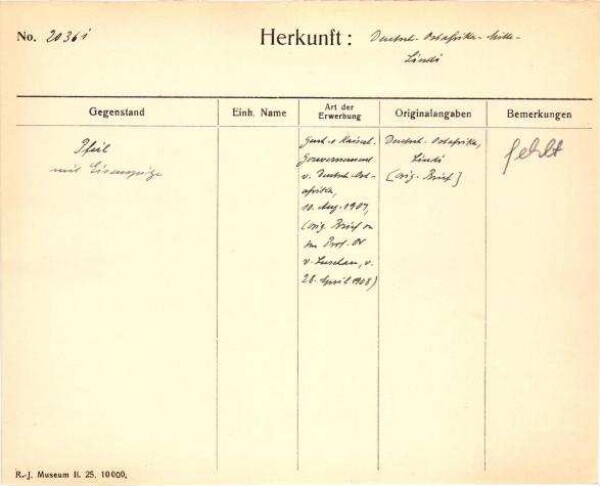 No. 2036i
Herkunft: Deutsch-Ostafrika-
Lindi
Gegenstand
Einh. Name
Art der
Erwerbung
Originalangaben
Bemerkungen
Pfeil
mit Eisenspitze
Gesch. v Kaiserl.
Gouvernement
v. Deutsch-Ost-
afrika,
10. Aug. 1907,
(orig. Brief
Prof. Dr
v. Luschan, v.
28. April 1908)
Deutsch-Ostafrika,
Lindi
(orig. Brief)
fehlt
R.-J. Museum II. 25. 10000.